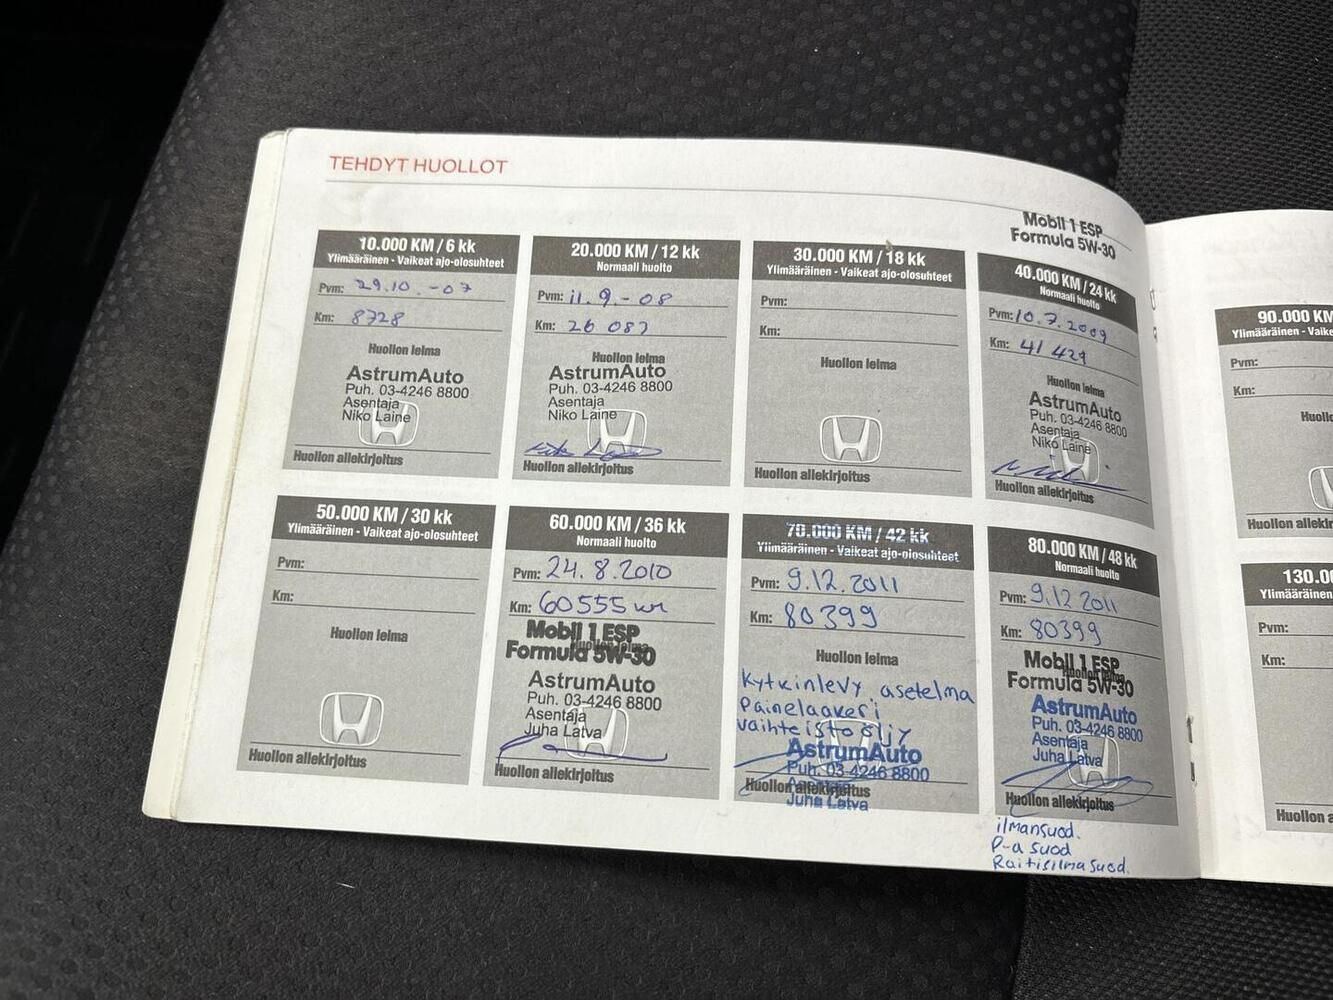 TEHDYT HUOLLOT
10.000 KM / 6 kk
Ylimääräinen - Vaikeat ajo-olosuhteet
Pvm: 29.10.-07
Km: 8728
Huollon leima
AstrumAuto
Puh. 03-4246 8800
Asentaja
Niko Laine
Huollon allekirjoitus
20.000 KM / 12 kk
Normaali huolto
Pvm: 11.9.-08
Km: 26 087
Huollon leima
AstrumAuto
Puh. 03-4246 8800
Asentaja
Niko Laine
Huollon allekirjoitus
30.000 KM / 18 kk
Ylimääräinen - Vaikeat ajo-olosuhteet
Pvm:
Km:
Huollon leima
Huollon allekirjoitus
Mobil 1 ESP
Formula 5W-30
40.000 KM / 24 kk
Normaali huolto
Pvm: 10.7.2009
Km: 41 429
Huollon leima
AstrumAuto
Puh. 03-4246 8800
Asentaja
Niko Laine
Huollon allekirjoitus
50.000 KM / 30 kk
Ylimääräinen - Vaikeat ajo-olosuhteet
Pvm:
Km:
Huollon leima
Huollon allekirjoitus
60.000 KM / 36 kk
Normaali huolto
Pvm: 24.8.2010
Km: 60555 km
Huollon leima
Mobil 1 ESP
Formula 5W-30
AstrumAuto
Puh. 03-4246 8800
Asentaja
Juha Latva
Huollon allekirjoitus
70.000 KM / 42 kk
Ylimääräinen - Vaikeat ajo-olosuhteet
Pvm: 9.12.2011
Km: 80399
Huollon leima
Kytkinlevy asetelma
Painelaakeri
Vaihteistoöljy
AstrumAuto
Puh. 03-4246 8800
Asentaja
Huollon allekirjoitus
Juha Latva
80.000 KM / 48 kk
Normaali huolto
Pvm: 9.12 2011
Km: 80399
Huollon leima
Mobil 1 ESP
Formula 5W-30
AstrumAuto
Puh. 03-4246 8800
Asentaja
Juha Latva
Huollon allekirjoitus
ilmansuod.
P-a suod
Raitisilmasuod.
90.000 KM
Ylimääräinen - Vaike
Pvm:
Km:
Huollo
Huollon allekir
130.00
Ylimääräinen
Pvm:
Km:
Huollon a